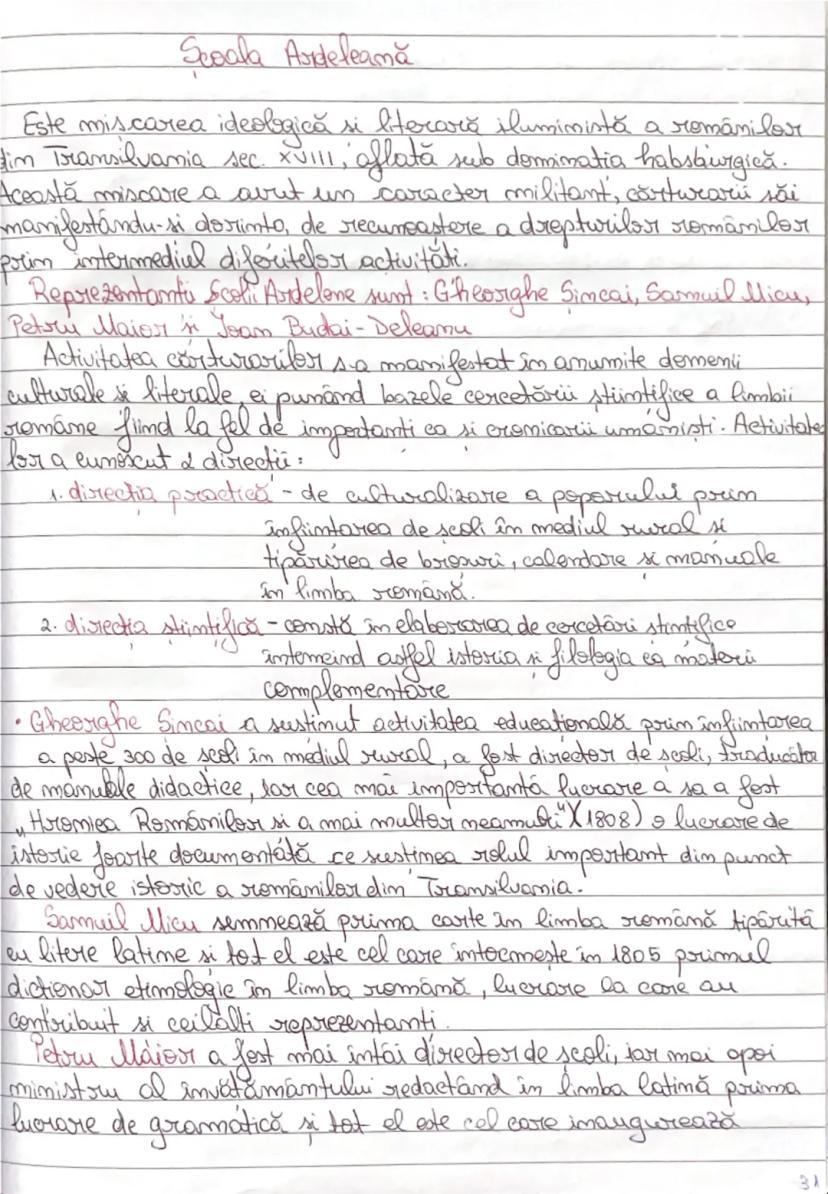 Școala Ardeleană
Este mișcarea ideologică si literară iluministă a românilor
din Transilvania sec. XVIII, aflată sub dominatia habsburgică.
Această miscare a avut un caracter militant, cărturarii săi
manifestându-si dorința, de recunoastere a drepturilor românilor
prin intermediul diferitelor activităti.
Reprezentantii Școlii Ardelene sunt: Gheorghe Șincai, Samuil Micu,
Petru Maior și Ioan Budai-Deleanu
Activitatea cărturarilor s-a manifestat în anumite domenii
culturale și literale, ei punând bazele cercetării științifice a limbii
române fiind la fel de importanti ca si cronicarii umaniști. Activitatea
lor a cunoscut 2 directii:
1. directia practică - de culturalizare a poporului prin
infiintarea de școli în mediul rural si
tipărirea de broșuri, calendare si manuale
în limba română.
2. directia științifică - constă în elaborarea de cercetări stintifice
intemeind astfel istoria și filologia ca materii
complementare
• Gheorghe Sincai a sustinut activitatea educatională prin infiintarea
a peste 300 de școli în mediul rural, a fost director de școli, traducător
de manuale didactice, iar cea mai importantă lucrare a sa a fost
„Hronica Românilor si a mai multor neamuri" (1808) o lucrare de
istorie foarte documentată ce sustinea rolul important din punct
de vedere istoric a românilor din Transilvania.
Samuil Micu semnează prima carte în limba română tipărită
cu litere latine si tot el este cel care întocmește în 1805 primul
dictionar etimologic în limba română, lucrare la care au
contribuit si ceilalti reprezentanti.
Petru Maior a fost mai întâi director de școli, iar mai apoi
ministru al invătământului redactând în limba latină prima
lucrare de gramatică și tot el este cel care inaugurează
31